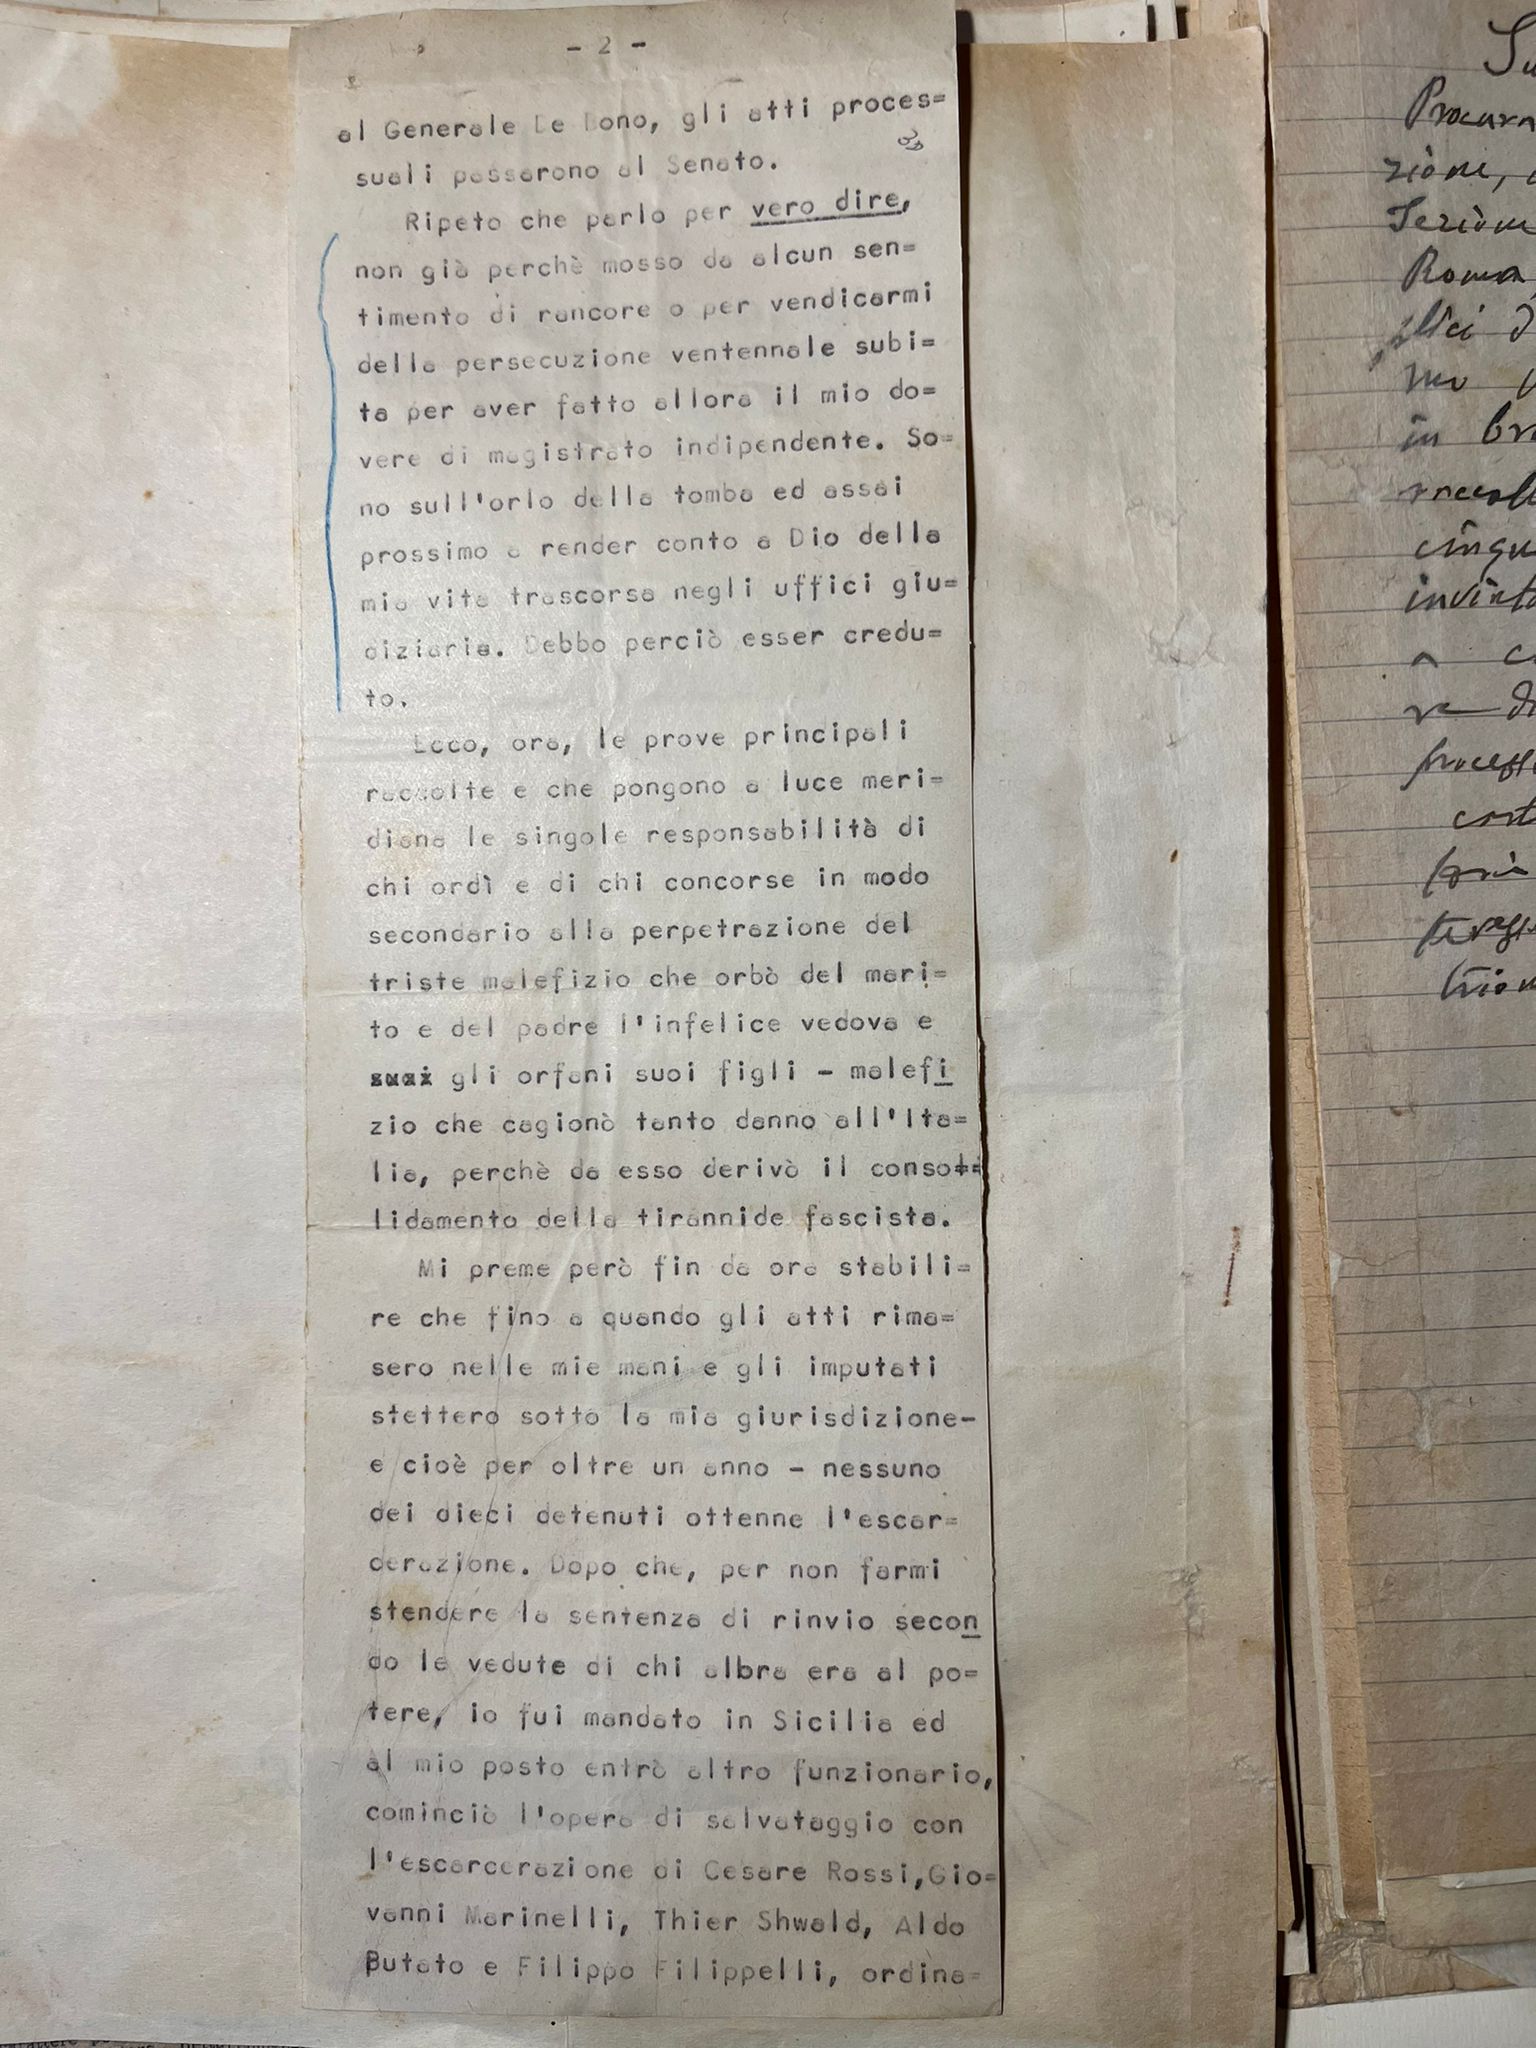 - 2 -
al Generale De Bono, gli atti proces=
suali passarono al Senato.
Ripeto che parlo per vero dire,
non già perchè mosso da alcun sen=
timento di rancore o per vendicarmi
della persecuzione ventennale subi=
ta per aver fatto allora il mio do=
vere di magistrato indipendente. So=
no sull'orlo della tomba ed assai
prossimo a render conto a Dio della
mia vita trascorsa negli uffici giu=
diziaria. Debbo perciò esser credu=
to.
Ecco, ora, le prove principali
raccolte e che pongono a luce meri=
diana le singole responsabilità di
chi ordì e di chi concorse in modo
secondario alla perpetrazione del
triste malefizio che orbò del mari=
to e del padre l'infelice vedova e
suoi gli orfani suoi figli - malefi
zio che cagionò tanto danno all'Ita=
lia, perchè da esso derivò il conso
lidamento della tirannide fascista.
Mi preme però fin da ora stabili=
re che fino a quando gli atti rima=
sero nelle mie mani e gli imputati
stettero sotto la mia giurisdizione-
e cioè per oltre un anno - nessuno
dei dieci detenuti ottenne l'escar=
cerazione. Dopo che, per non farmi
stendere la sentenza di rinvio secon
do le vedute di chi albra era al po=
tere, io fui mandato in Sicilia ed
al mio posto entrò altro funzionario,
cominciò l'opera di salvataggio con
l'escarcerazione di Cesare Rossi,Gio=
vanni Marinelli, Thier Shwald, Aldo
Butato e Filippo Filippelli, ordina=
Roma
in